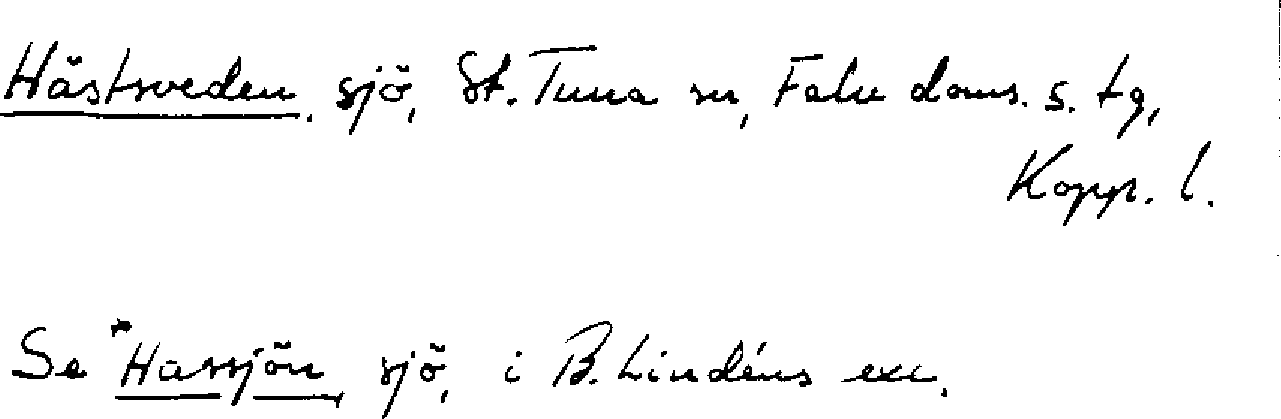 Hästsveden, sjö, St. Tuna sn, Falu doms. s. tg,
Kopp. l.
Se *Hassjön, sjö, i B. Lindéns exc.